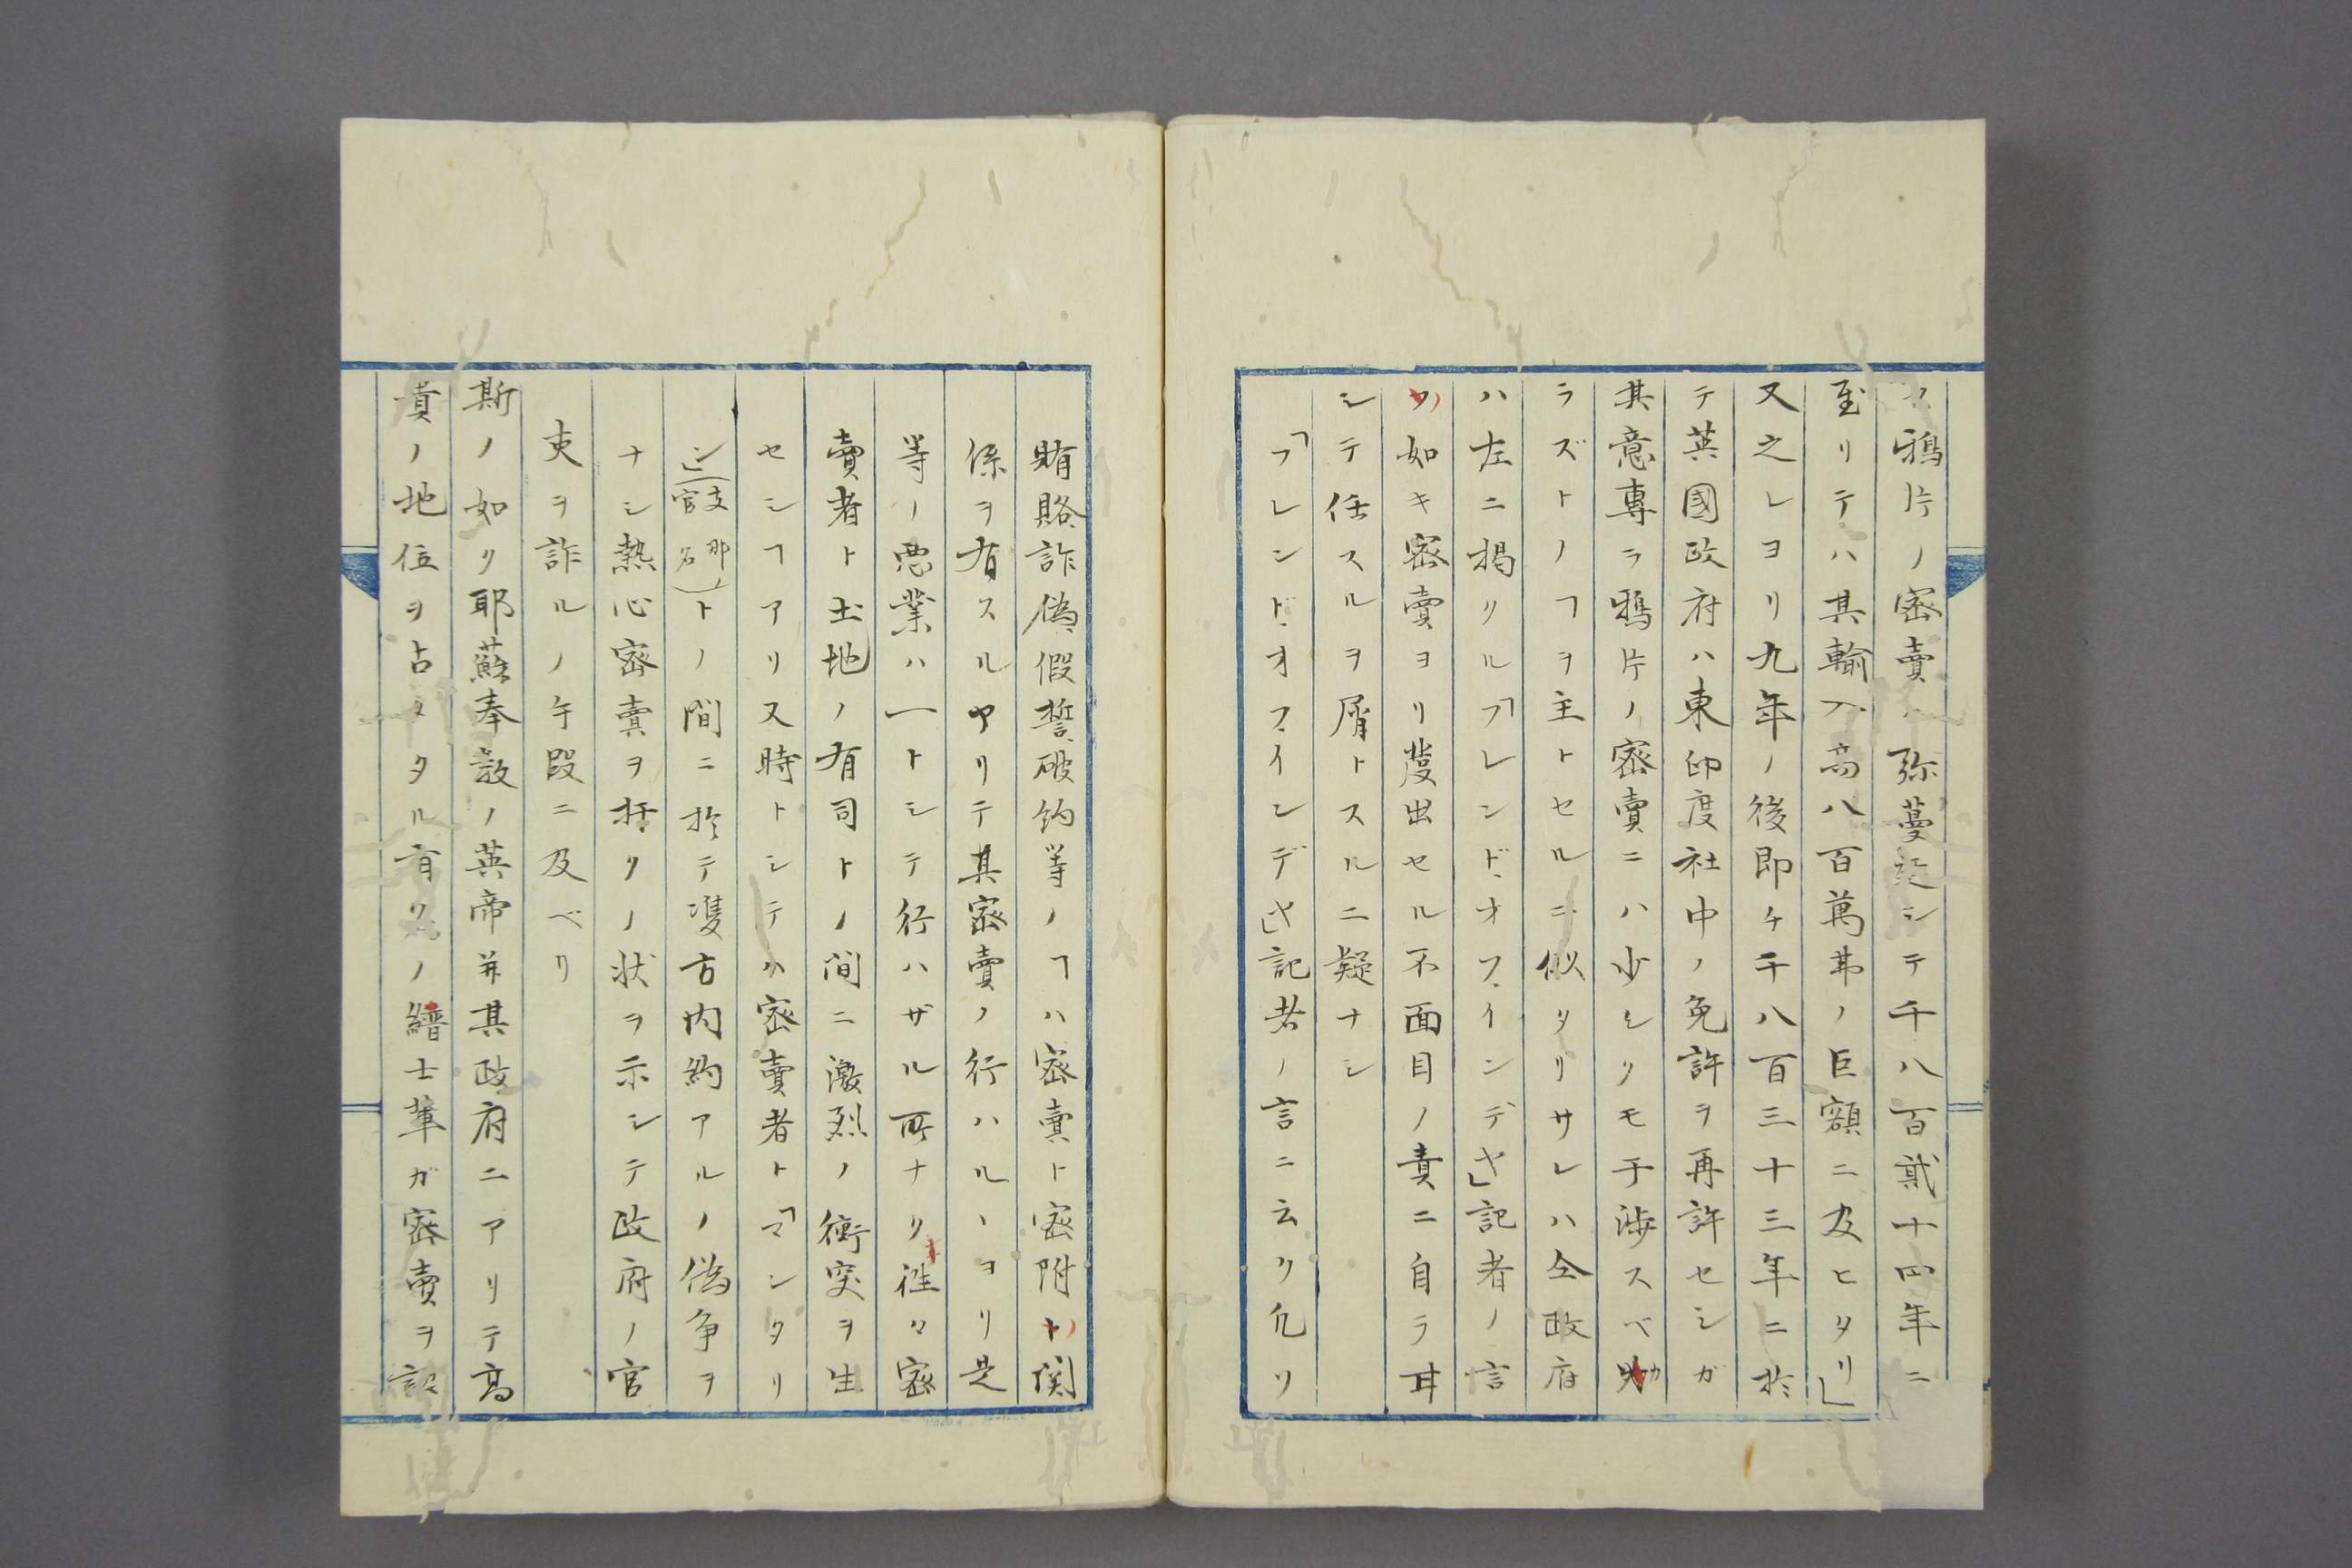 鴉片ノ密賣彌蔓延シテ千八百貳十四年ニ
至リテハ其輸入高八百萬弗ノ巨額ニ及ヒタリ」
又之レヨリ九年ノ後即チ千八百三十三年ニ於
テ英國政府ハ東印度社中ノ免許ヲ再許セシガ
其意專ラ鴉片ノ密賣ニハ少シクモ干渉スベカ
ラズトノヿヲ主トセルニ似タリサレハ仝政府
ハ左ニ掲クル「フレンドオフインデヤ」記者ノ言
ノ如キ密賣ヨリ發出セル不面目ノ責ニ自ラ甘
シテ任スルヲ屑トスルニ疑ナシ
「フレンドオフインデヤ」記者ノ言ニ云ク凡ソ
賄賂詐偽假誓破約等ノヿハ密賣ト密附ノ関
係ヲ有スルヤリテ其密賣ノ行ハルヽヨリ是
等ノ惡業ハ一トシテ行ハザル所ナリ徃々密
賣者ト土地ノ有司トノ間ニ激烈ノ衝突ヲ生
セシヿアリ又時トシテハ密賣者ト「マンタリ
ン」(支那官名)トノ間ニ於テ雙方内約アルノ偽争ヲ
ナシ熱心密賣ヲ拒クノ状ヲ示シテ政府ノ官
吏ヲ詐ルノ手段ニ及ベリ
斯ノ如リ耶蘇奉教ノ英帝并其政府ニアリテ高
貴ノ地位ヲ占メタル有名ノ縉士輩ガ密賣ヲ認